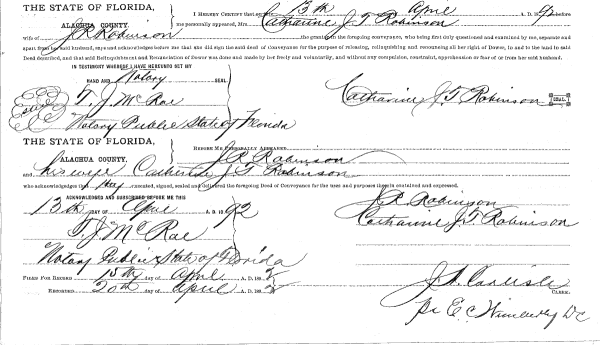 THE STATE OF FLORIDA,
ALACHUA COUNTY.
I HEREBY CERTIFY that on this 13th day of April A. D. 92 before
me personally appeared, Mrs. Catharine J. F. Robinson
wife of J. R. Robinson the grantor in the foregoing conveyance, who being first duly questioned and examined by me, separate and
apart from her said husband, says and acknowledges before me that she did sign the said deed of conveyance for the purpose of releasing, relinquishing and renouncing all her right of Dower, in and to the land in said
Deed described, and that said Relinquishment and Renunciation of Dower was done and made by her freely and voluntarily, and without any compulsion, constraint, apprehension or fear of or from her said husband.
IN TESTIMONY WHEREOF I HAVE HEREUNTO SET MY
HAND AND Notary SEAL
T. J. McRae
Notary Public State of Florida
Catharine J. F. Robinson SEAL
THE STATE OF FLORIDA,
ALACHUA COUNTY.
BEFORE ME PERSONALLY APPEARED, J. R. Robinson
and his wife Catherine J. F. Robinson
who acknowledges that they executed, signed, sealed and delivered the foregoing Deed of Conveyance for the uses and purposes therein contained and expressed.
ACKNOWLEDGED AND SUBSCRIBED BEFORE ME THIS
13th DAY OF April A. D. 1892
T. J. McRae
Notary Public State of Florida
J. R. Robinson
Catharine J. F. Robinson
FILED FOR RECORD 15th day of April A. D. 1892
RECORDED 20th day of April A. D. 1892
J. A. Carlisle
CLERK.
pr E. C. Wimberly DC